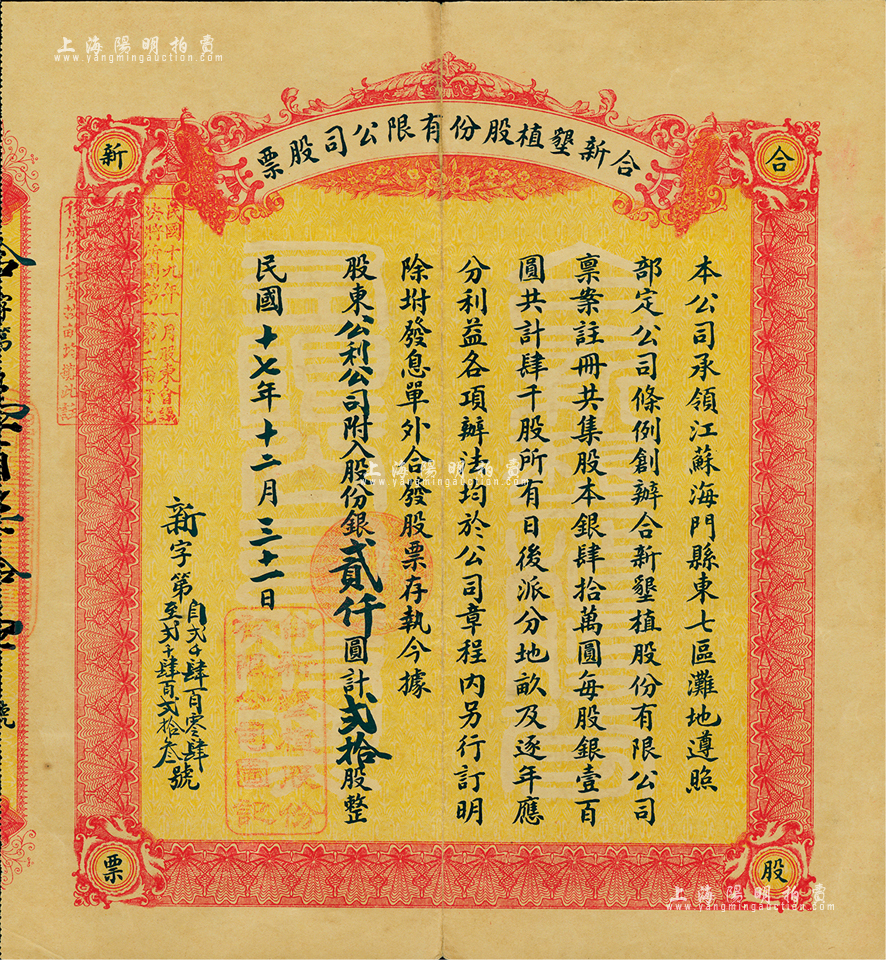 上海陽明拍賣
www.yangmingauction.com
合新墾植股份有限公司股票
合
新
股
票
本公司承領江蘇海門縣東七區灘地遵照
部定公司條例創辦合新墾植股份有限公司
稟案註冊共集股本銀肆拾萬圓每股銀壹百
圓共計肆千股所有日後派分地畝及逐年應
分利益各項辦法均於公司章程內另行訂明
除坿發息單外合發股票存執今據
股東公利公司附入股份銀貳仟圓計貳拾股整
民國十七年十二月三十一日
新字第自貳千肆百零肆至貳千肆百貳拾叁號
民國十九年一月股東會議
決將
合新墾植股份
有限公司圖記
上海陽明拍賣
www.yangmingauction.com
上海陽明拍賣
www.yangmingauction.com